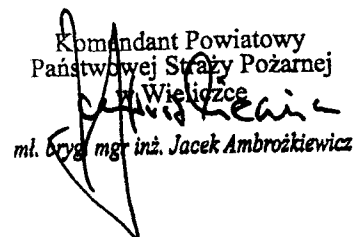 Komendant Powiatowy
Państwowej Straży Pożarnej
w Wieliczce
mł. bryg. mgr inż. Jacek Ambrożkiewicz